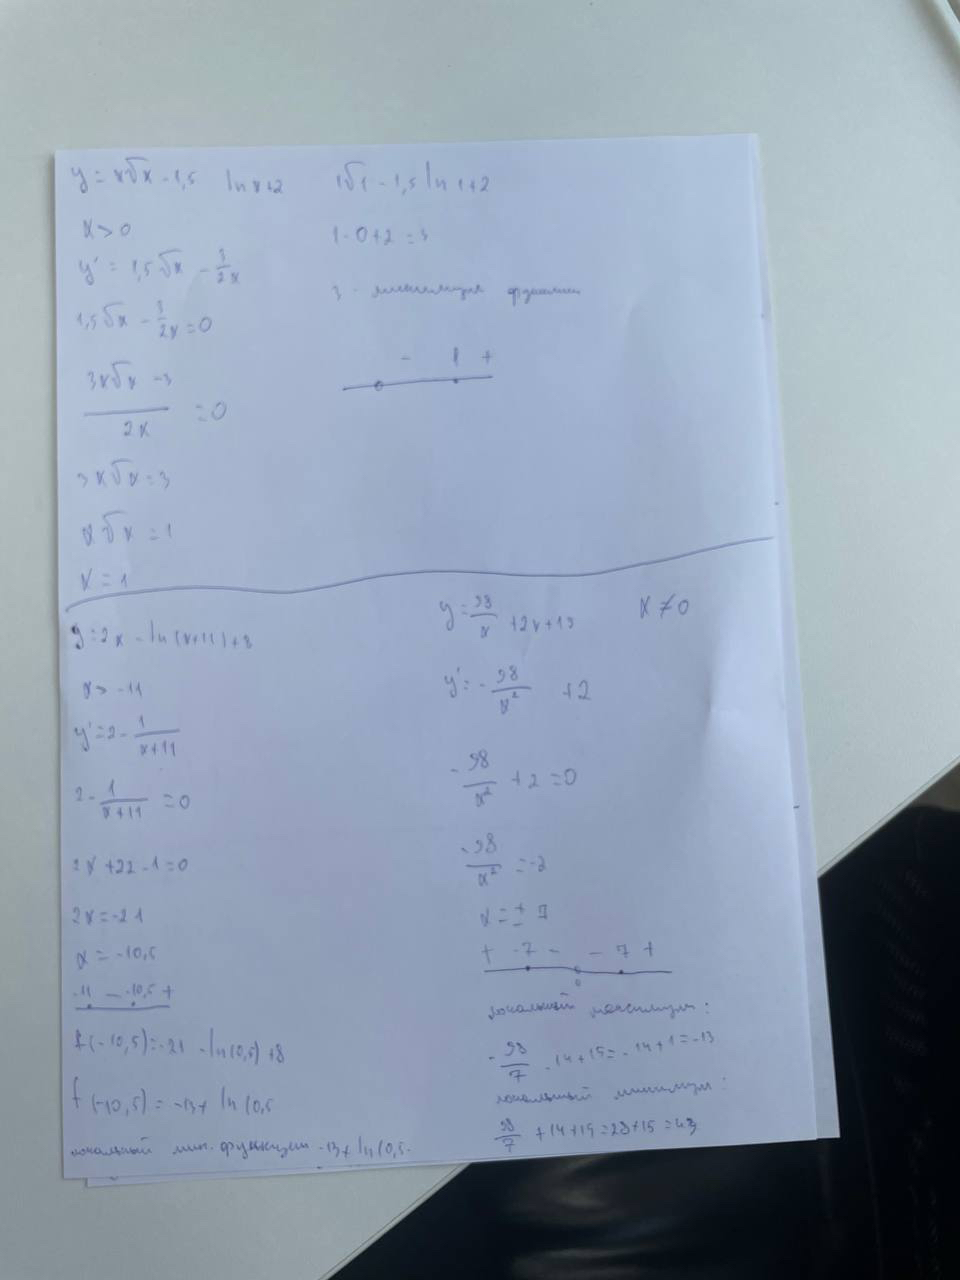 y = x√x - 1,5 ln x+2
x > 0
y' = 1,5√x - 3/2x
1,5√x - 3/2x = 0
(3x√x - 3)/2x = 0
3x√x = 3
x√x = 1
x = 1
1√1 - 1,5 ln 1+2
1 - 0 + 2 = 3
3 - минимум функции
- 1 +
y = 2x - ln(x+11)+8
x > -11
y' = 2 - 1/(x+11)
2 - 1/(x+11) = 0
2x + 22 - 1 = 0
2x = -21
x = -10,5
-11 - -10,5 +
f(-10,5) = -21 - ln(0,5) +8
f(-10,5) = -13+ ln(0,5
локальный мин. функции -13+ ln(0,5.
y = 98/x + 2x + 15 x ≠ 0
y' = - 98/x² + 2
- 98/x² + 2 = 0
- 98/x² = -2
x = ± 7
+ -7 - - 7 +
0
локальный максимум:
- 98/7 - 14 + 15 = - 14 + 1 = -13
локальный минимум:
98/7 + 14 + 15 = 28 + 15 = 43